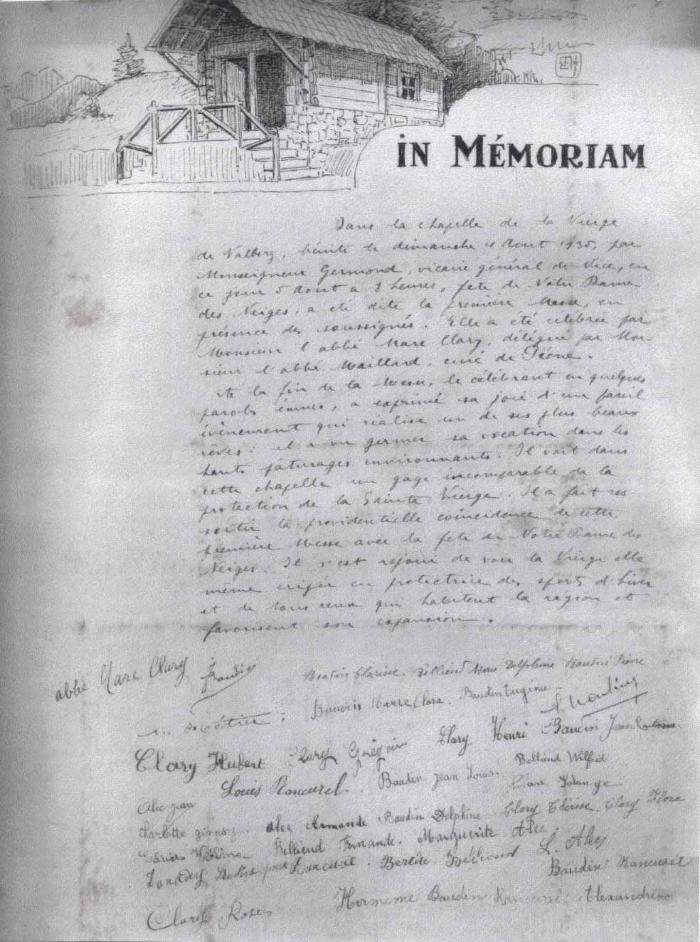 IN MÉMORIAM
Dans la chapelle de la Vierge
de Valberg, bénite le dimanche 4 Aout 1935, par
Monseigneur Germond, vicaire général de Nice, en
ce jour 5 Aout à 8 heures, fête de Notre Dame
des Neiges, a été dite la première Messe, en
présence des soussignés. Elle a été célébrée par
Monsieur l'abbé Marc Clary, délégué par Mon-
sieur l'abbé Maillard, curé de Péone.
A la fin de la Messe, le célébrant en quelques
paroles émues, a exprimé sa joie d'un pareil
événement qui réalise un de ses plus beaux
rêves : il a vu germer sa vocation dans les
hauts pâturages environnants. Il voit dans
cette chapelle un gage incomparable de la
protection de la Sainte Vierge. Il a fait res-
sortir la providentielle coïncidence de cette
première Messe avec la fête de Notre Dame des
Neiges. Il s'est réjoui de voir la Vierge elle
même érigée en protectrice des sports d'hiver
et de tous ceux qui habitent la région et
favorisent son expansion.
abbé Marc Clary
Clarisse. Belliend Marie Delphine Baudin Pierre
Baudin Marre Clara. Baudin Eugénie
Clary Hubert Clary Grégoir Clary Henri Baudin Jean
Louis Rancurel. Baudin Jean Louis. Belliend Wilfrid
Charlotte Alec Armande. Baudin Delphine. Clary Thérèse. Clary Flore
Belliend Fernande. Marguerite Alec
Rancurel. Belliend L. Alec
Baudin Rancurel
Clary Rose Hermeme Baudin Rancurel Alexandrine